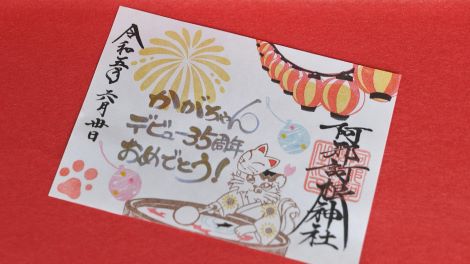 令和五年
六月卅日
かがちゃん
デビュー35周年
おめでとう!
阿那賀神社